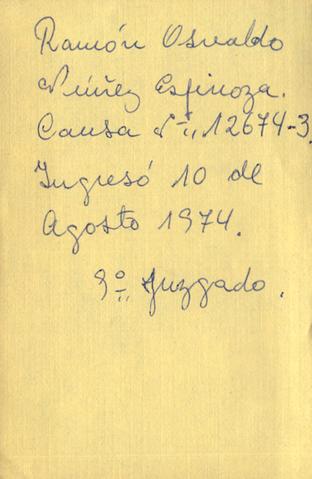 Ramón Osvaldo
Núñez Espinoza.
Causa Nº 12674-3.
Ingresó 10 de
Agosto 1974.
9º Juzgado.